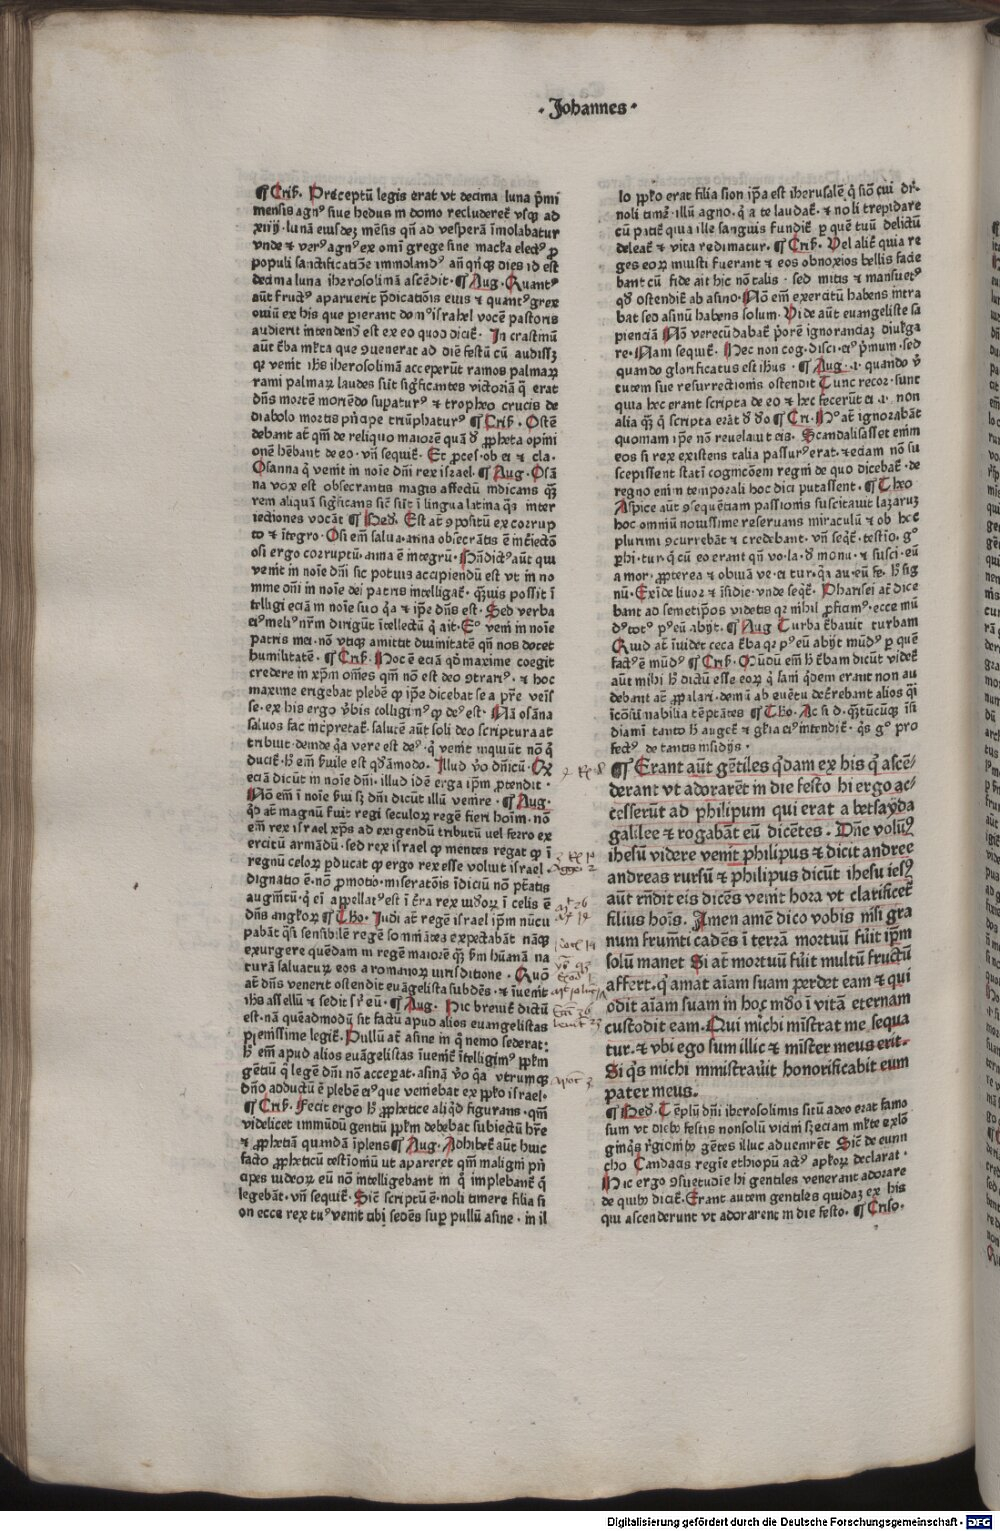 · Johannes ·
¶ Criſ. Preceptū legis erat vt decima luna p̄mi
menſis agnꝰ ſiue hedus in domo recluderet̄ vſqꝫ ad
xiiij. lunā eiuſdeꝫ mēſis qn̄ ad veſperā īmolabatur
vnde ⁊ verꝰ agnꝰ ex omī grege ſine macl̄a electꝰ ꝓ
populi ſanctificatiōe immolandꝰ an̄ qn̄qꝫ dies id eſt
decima luna iheroſolimā aſcēdit. ¶ Aug. Quantꝰ
aūt fructꝰ aparuerit p̄dicatiōis eius ⁊ quantꝰ grex
ouiū ex his que pierant domꝰ iſrahel vocē paſtoris
audierit intendendū eſt ex eo quod dicit̄. In craſtinū
aūt t̄ba ml̄ta que ꝯuenerat ad diē feſtū cū audiſſꝫ
qꝛ venit ihs iheroſolimā acceperūt ramos palmaꝝ
rami palmaꝝ laudes ſūt ſigͥficantes victoriā qͣ erat
dn̄s mortē moriēdo ſupaturꝰ ⁊ tropheo crucis de
diabolo mortis pͥncipe triūphaturꝰ ¶ Criſ. Oſtē
debant at̄ qm̄ de reliquo maiorē quā ꝓpheta opini
onē hēbant de eo. vn̄ ſequit̄. Et proceſ. ob ei ⁊ cla.
Oſanna qͥ venit in noīe dn̄i rex iſrael. ¶ Aug. Oſā
na vox eſt obſecrantis magis affectū īndicans qꝫ
rem aliquā ſigͥficans ſic̄ ſūt ī lingua latina qͣs inter
iectiones vocāt ¶ Bed̄. Eſt at̄ ꝯpoſitū ex corrup
to ⁊ ītegro. Oſi em̄ ſalua. anna obſecrātis ē int̄iectō
oſi ergo corruptū. anna ē integrū. Bn̄dictꝰ aūt qui
venit in noīe dn̄i ſic potius accipiendū eſt vt in no
mine dn̄i in noīe dei patris intelligat̄. quis poſſit ī
telligi eciā in noīe ſuo qͣ ⁊ ip̄e dn̄s eſt. Sed verba
eiꝰ meliꝰ nr̄m dirigūt ītellectū qͥ ait. Egͦ veni in noīe
patris mei. nō vtiqꝫ amittit diuinitatē qn̄ nos docet
humilitatē. ¶ Criſ. Hoc ē eciā qd̄ maxime coegit
credere in xp̄m om̄es qm̄ nō eſt deo ꝯtrariꝰ. ⁊ hoc
maxime erigebat plebē ꝙ ip̄e dicebat ſe a pr̄e veīſ
ſe. ex his ergo v̄bis colligimꝰ ꝙ deꝰ eſt. Nā oſāna
ſaluos fac int̄pretat̄. ſalutē aūt ſoli deo ſcriptura at
tribuit. deinde qͣ vere eſt deꝰ. qͥ venit inquiūt nō qͥ
ducit̄. em̄ ſ̄uile eſt qd̄āmodo. Illud v̄o dn̄icū. Qꝛ
eciā dicūt in noīe dn̄i. illud idē erga ip̄m ꝓtendit.
Nō em̄ ī noīe ſ̄ui ſꝫ dn̄i dicūt illū venire. ¶ Aug.
Qͥd at̄ magnū fuit regi ſeculoꝝ regē fieri hoīm. nō
em̄ rex iſrael xp̄s ad exigendū tributū vel ferro ex
ercitū armādū. ſed rex iſrael ꝙ mentes regat ꝙ ī
regnū celoꝝ ꝑducat ꝙ ergo rex eſſe voluit iſrael.
dignatio ē. nō ꝓmotio. miſeratōis īdiciū nō pt̄atis
augm̄tū. qͥ ei appellatꝰ eſt ī t̄ra rex iudeoꝝ ī celis ē
dn̄s angl̄oꝝ ¶ Theo. Iudi at̄ regē iſrael ip̄m nūcu
pabāt qͣſi ſenſibilē regē ſomniātes expectabāt nāqꝫ
exurgere quēdam in regē maiorē qͣꝫ ſm̄ hūanā na
turā ſaluatuꝝ eos a romanoꝝ iuriſditione. Quō
at̄ dn̄s venerit oſtendit euāgeliſta ſubdēs. ⁊ īuenit
ihs aſſellū ⁊ ſedit ſr̄ eū. ¶ Aug. Hic breuit̄ dictū
eſt. nā quēadmodū ſit factū apud alios euangeliſtas
pleniſſime legit̄. Pullū at̄ aſine in qͦ nemo ſederat:
em̄ apud alios euāgeliſtas īuenit̄ ītelligimꝰ ppl̄m
gētiū qͥ legē dn̄i nō acceꝑat. aſinā v̄o qͣ vtrumqꝫ
dn̄o adductū ē plebē eiꝰ que veniebat ex ppl̄o iſrael.
¶ Criſ. Fecit ergo ꝓphetice aliqd̄ figurans. qm̄
videlicet immūdū gentiū ppl̄m debebat ſubiectū hr̄e
⁊ ꝓphetiā quandā īplens ¶ Aug. Adhibet̄ aūt huic
facto ꝓpheticū teſtioniū ut apareret qm̄ maligni pͥn
cipes iudeoꝝ eū nō intelligebant in qͦ implebant̄ qͥ
legebāt. vn̄ ſequit̄. Sic̄ ſcriptū ē. noli timere filia ſi
on ecce rex tuꝰ venit tibi ſedēs ſuꝑ pullū aſine. in il
lo ppl̄o erat filia ſion ip̄a eſt iheruſalē qͥ ſiō cui dr̄.
noli timē. illū agno. qͥ a te laudat̄. ⁊ noli trepidare
cū patit̄ quia ille ſanguis fundit̄ ꝑ quē tuū delictū
deleat̄ ⁊ vita redimatur. ¶ Criſ. Vel alit̄ quia re
ges eoꝝ iniuſti fuerant ⁊ eos obnoxios bellis facie
bant cū fide ait hic nō talis. ſed mitis ⁊ manſuetꝰ
qd̄ oſtendit̄ ab aſino. Nō em̄ exercitū habens intra
bat ſed aſinū habens ſolum. Vide aūt euangeliſte ſa
pienciā Nō verecūdabat̄ p̄orē ignoranciaꝫ diuulga
re. Nam ſequit̄. Hec non cog. diſci. eiꝰ p̄mum. ſed
quando glorificatus eſt ihus. ¶ Aug. .i. quando v̄
tutem ſue reſurrectionis oſtendit Tunc recor. ſunt
quia hec erant ſcripta de eo ⁊ hec fecerūt ei .i. non
alia qͣꝫ qͥ ſcripta erāt ¶ Cri. at̄ ignorabāt
quoniam ip̄e nō reuelauit eis. Scandaliſaſſet enim
eos ſi rex exiſtens talia paſſurꝰ erat. ⁊ eciam nō ſu
ſcepiſſent ſtatī cognicōem regni de quo dicebat̄. de
regno enim temporali hoc dici putaſſent. ¶ Theo
Aſpice aūt ꝯſequēciam paſſionis ſuſcitauit lazaruꝫ
hoc omniū nouiſſime reſeruans miraculū ⁊ ob hoc
plurimi ꝯcurrebāt ⁊ credebant. vn̄ ſeqͥt̄. teſtio. gͦ
phi. tur. qͥ cū eo erant qn̄ vo. la. monu. ⁊ ſuſci. eū
a mor. ꝓpterea ⁊ obuiā ve. ei tur. qͣ au. eū fe. ſig
nū. Exīde liuor ⁊ īſidie. vnde ſeqͥt̄. Phariſei at̄ dice
bant ad ſemetip̄os videtis qꝛ nihil ꝓficimꝰ. ecce mū
dꝰ totꝰ pꝰ eū abijt. ¶ Aug Turba t̄bauit turbam
Quid at̄ īuidet ceca t̄ba qꝛ pꝰ eū abijt mūdꝰ ꝑ quē
factꝰ ē mūdꝰ ¶ Criſ. Mūdū em̄ t̄bam dicūt videt̄
aūt mihi dictū eſſe eoꝝ qͥ ſani qͥdem erant non au
debant at̄ ꝓpalari. deinī ab euētu detͥrebant alios qͥſi
īcōſūmabilia tēptātes ¶ Theo. Ac ſi d. qͣntūcūqꝫ īſi
diami tanto auget̄ ⁊ gl̄ia eiꝰ intendit̄. qͥs gͦ pro
fectꝰ de tantis inſidijs.
¶ Erant aūt gētiles qͥdam ex his qͥ aſcē⸗
derant vt adorarēt in die feſto hi ergo ac⸗
ceſſerūt ad philipum qui erat a betſayda
galilee ⁊ rogabāt eū dicētes. Dn̄e volūꝰ
iheſū videre venit philipus ⁊ dicit andree
andreas rurſū ⁊ philipus dicūt iheſu ieſꝰ
aūt rn̄dit eis dicēs venit hora vt clarificet̄
filius hoīs. Amen amē dico vobis niſi gra
num frumti cadēs ī terrā mortuū fūit ip̄m
ſolū manet Si at̄ mortuū fūit multū fructū
affert. qͥ amat aīam ſuam perdet eam ⁊ qui
odit aīam ſuam in hoc mdō ī vitā eternam
cuſtodit eam. Qui michi miſtrat me ſequa
tur. ⁊ vbi ego ſum illic ⁊ miſter meus erit.
Si qͥs michi miniſtrauit honorificabit eum
pater meus.
¶ Bed̄. Tēplū dn̄i iheroſolimis ſitū adeo erat famo
ſum vt diebꝰ feſtis nonſolū vicini ſꝫ eciam ml̄te exlō
ginqͥs rͥgionibꝰ gētes illuc aduenirēt Sic̄ de eunu
cho Candacis regīe ethiopū actꝰ apl̄oꝝ declarat.
Hic ergo ꝯſuetudīe hi gentiles venerant adorare
de quibꝰ dicit̄. Erant autem gentiles quidaꝫ ex his
qui aſcenderunt vt adorarent in die feſto. ¶ Criſo.
Digitalisierung gefördert durch die Deutsche Forschungsgemeinschaft - DFG